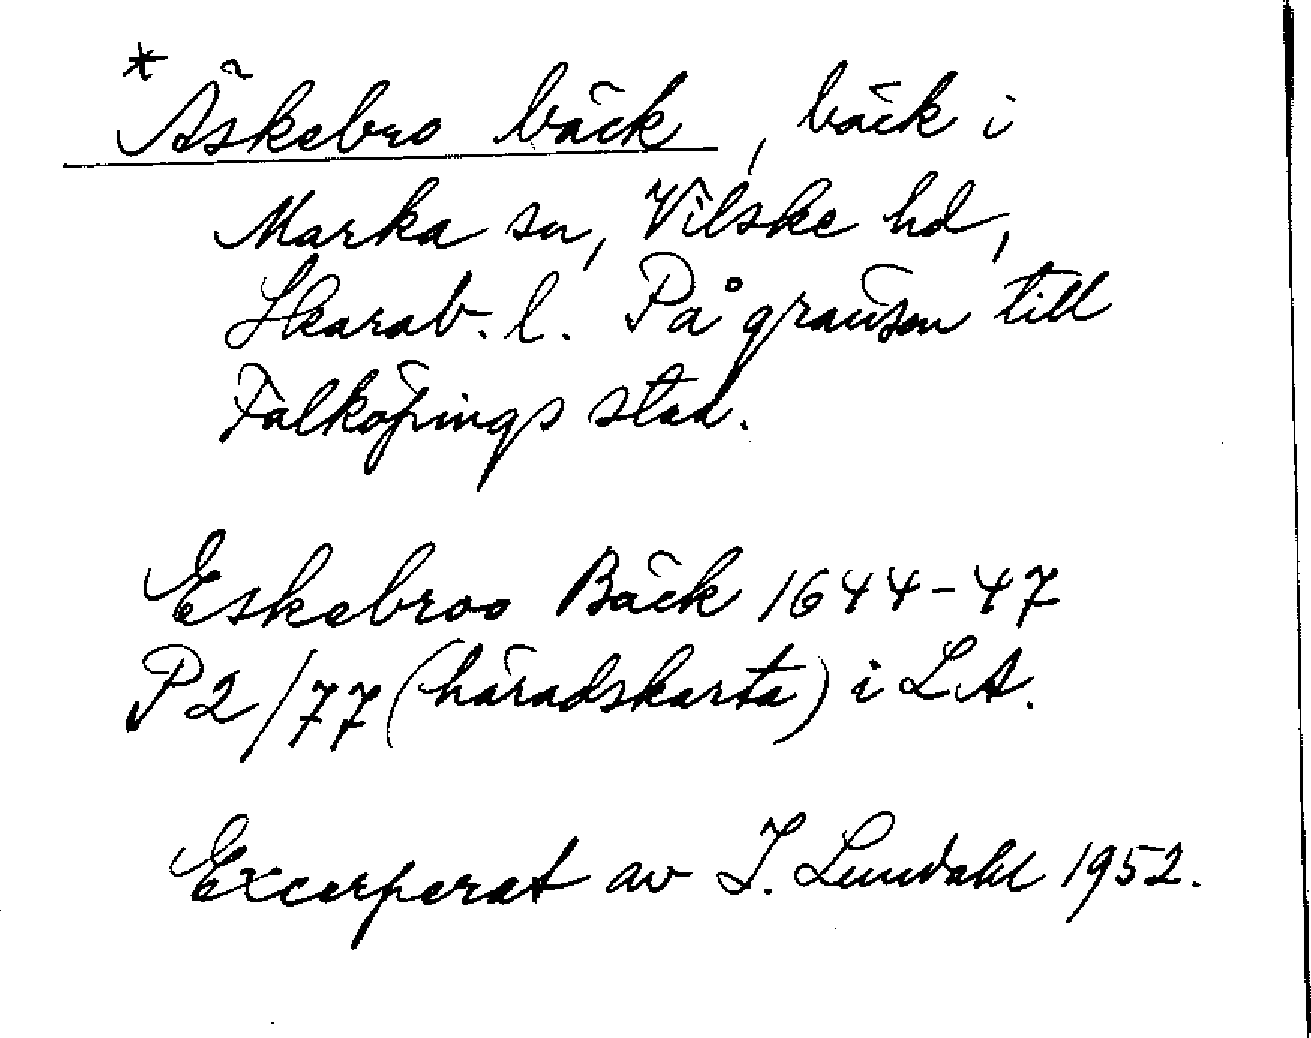 *Äskebro bäck, bäck i
Marka sn, Vilske hd,
Skarab. l. På gränsen till
Falköpings stad.
Eskebroo Bäck 1644-47
P2/77 (häradskarta) i LA.
Excerperat av I. Lundahl 1952.